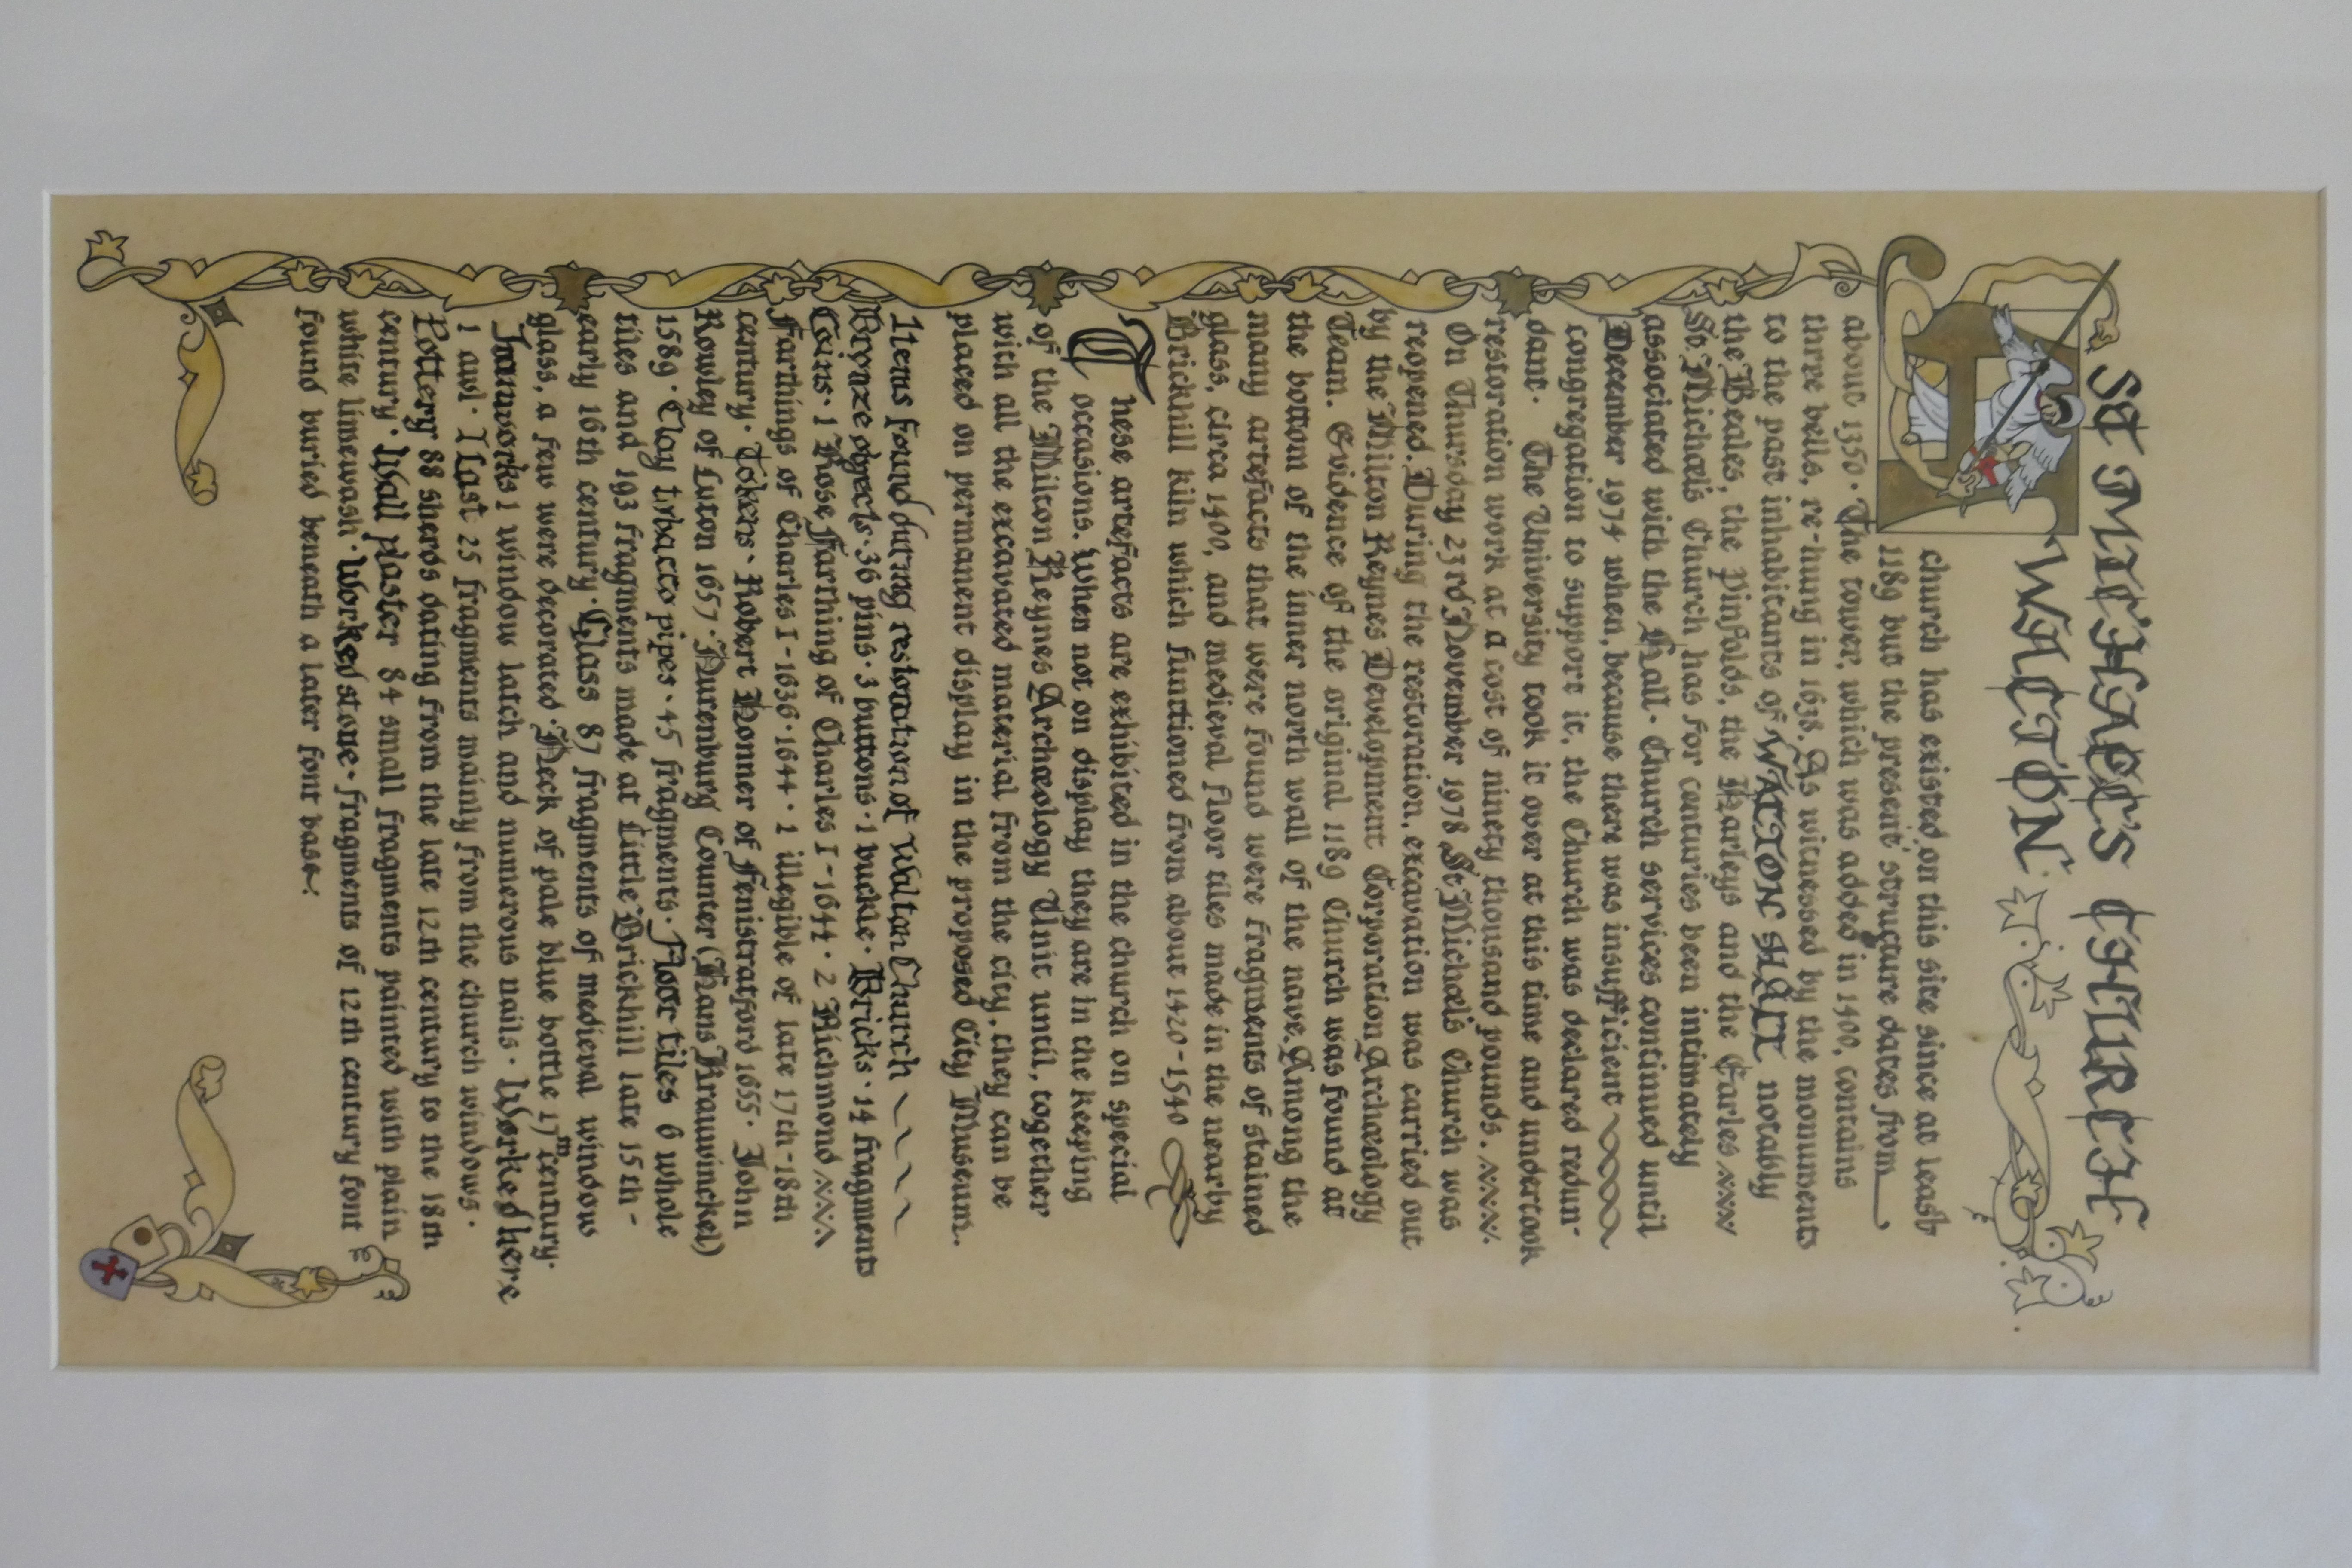 St MICHAEL'S CHURCH
WALTON
A church has existed on this site since at least
1189 but the present structure dates from
about 1350. The tower, which was added in 1400, contains
three bells, re-hung in 1638. As witnessed by the monuments
to the past inhabitants of WALTON HALL notably
the Beales, the Pinfolds, the Harleys and the Earles
St. Michael's Church has for centuries been intimately
associated with the Hall. Church services continued until
December 1974 when, because there was insufficient
congregation to support it, the Church was declared redun-
dant. The University took it over at this time and undertook
restoration work at a cost of ninety thousand pounds.
On Thursday 23rd November 1978 St Michael's Church was
reopened. During the restoration, excavation was carried out
by the Milton Keynes Development Corporation Archæology
Team. Evidence of the original 1189 Church was found at
the bottom of the inner north wall of the nave. Among the
many artefacts that were found were fragments of stained
glass, circa 1400, and medieval floor tiles made in the nearby
Brickhill kiln which functioned from about 1420-1540
These artefacts are exhibited in the church on special
occasions. When not on display they are in the keeping
of the Milton Keynes Archæology Unit until, together
with all the excavated material from the city, they can be
placed on permanent display in the proposed City Museum.
Items found during restoration of Walton Church
Bronze objects · 36 pins · 3 buttons · 1 buckle · Bricks · 14 fragments
Coins · 1 Rose Farthing of Charles I - 1644 · 2 Richmond
Farthings of Charles I - 1636 - 1644 · 1 illegible of late 17th - 18th
century · Tokens · Robert Honner of Fenistratford 1655 · John
Rowley of Luton 1657 · Nurenburg Counter (Hans Krauwinckel)
1589 · Clay tobacco pipes · 45 fragments · Floor tiles 6 whole
tiles and 193 fragments made at Little Brickhill late 15th -
early 16th century · Glass 87 fragments of medieval window
glass, a few were decorated · Neck of pale blue bottle 17th century.
Ironworks 1 window latch and numerous nails · Worked here
1 awl · 1 Last 25 fragments mainly from the church windows ·
Pottery 88 sherds dating from the late 12th century to the 18th
century · Wall plaster 84 small fragments painted with plain
white limewash · Worked stone · fragments of 12th century font
found buried beneath a later font base.